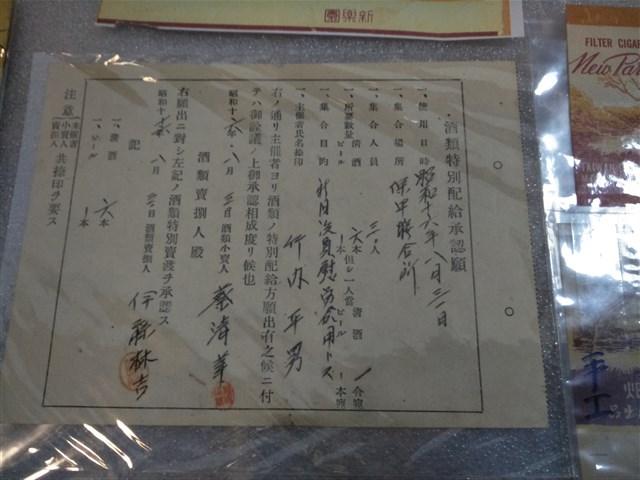 新樂園
酒類特別配給承認願
一、使用日時 昭和十六年八月三日
一、集合場所 保甲聯合所
一、集合人員 三〇人
一、所要數量 清酒 六本 但シ一人當 清酒 一合宛
ビール 本 ビール 本宛
一、集合目的 役員慰労会用トス
一、主催者氏名捺印 竹内平男
右ノ通リ主催者ヨリ酒類ノ特別配給方願出有之候ニ付
テハ御詮議ノ上御承認相成度リ候也
昭和十六年八月三日 酒類小賣人
酒類賣捌人殿
右願出ニ對シ左記ノ酒類特別賣渡ヲ承認ス
昭和十六年八月 日 酒類賣捌人 林吉
記
一、清酒 六本
一、ビール 本
注意 主催者 小賣人 賣捌人 共捺印ヲ要ス
FILTER CIGAR
New Par
手工